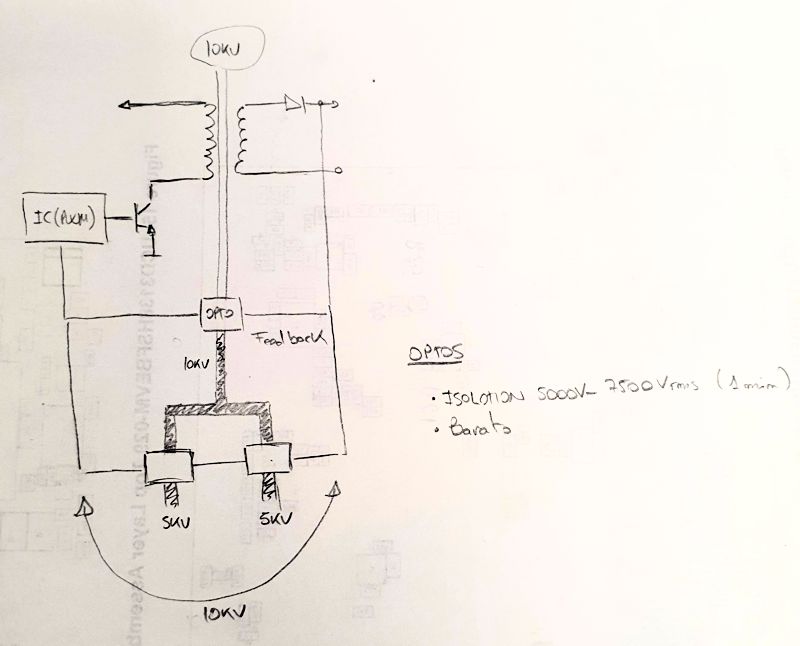 10KV
IC(PWM)
OPTO
Feedback
10KV
5KV
5KV
10KV
OPTOS
• ISOLATION 5000V- 7500Vrms (1min)
• Barato